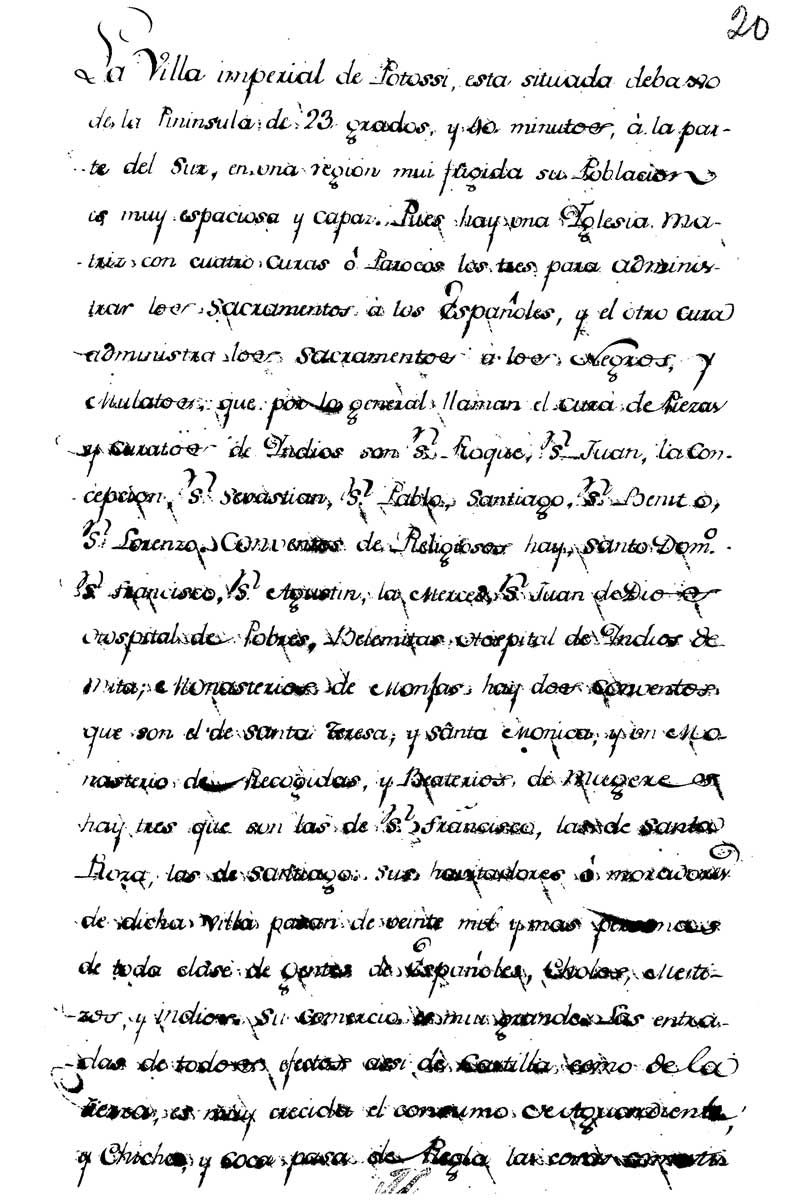 20
La Villa imperial de Potossi, esta situada debaxo
de la Pininsula de 23 grados, y 40 minutos, à la par-
te del Sur, en una region mui frigida su Poblacion
es muy espaciosa y capaz. Pues hay una Iglesia Ma-
triz con cuatro Curas ó Parocos los tres para adminis-
trar los Sacramentos à los Españoles, y el otro cura
administra los Sacramentos à los Negros, y
Mulatos, que por lo general llaman el cura de Piezas
y curatos de Indios son Sn. Roque, Sn. Juan, la Con-
cepcion, Sn. Sevastian, Sn. Pablo, Santiago, Sn. Benito,
Sn. Lorenzo. Conventos de Religiosos hay, Santo Domo.
Sn. Francisco, Sn. Agustin, la Merced, Sn. Juan de Dios
Hospital de Pobres, Belemitas Hospital de Indios de
Mita; Monasterios de Monjas hay dos conventos
que son el de Santa Teresa, y Sânta Monica, y un Mo-
nasterio de Recogidas, y Beaterios de Mugeres
hay tres que son las de Sn. Francisco, las de Santa
Roza, las de Santiago. Sus havitadores ó moradores
de dicha Villa pasan de veinte mil y mas personas
de toda clase de gentes de Españoles, Cholos, Mesti-
zos, y Indios. Su Comercio es mui grande. Las entra-
das de todos efectos asi de Castilla como de la
tierra, es muy crecida el consumo de Aguardiente,
y Chicha, y coca pasa de Regla las